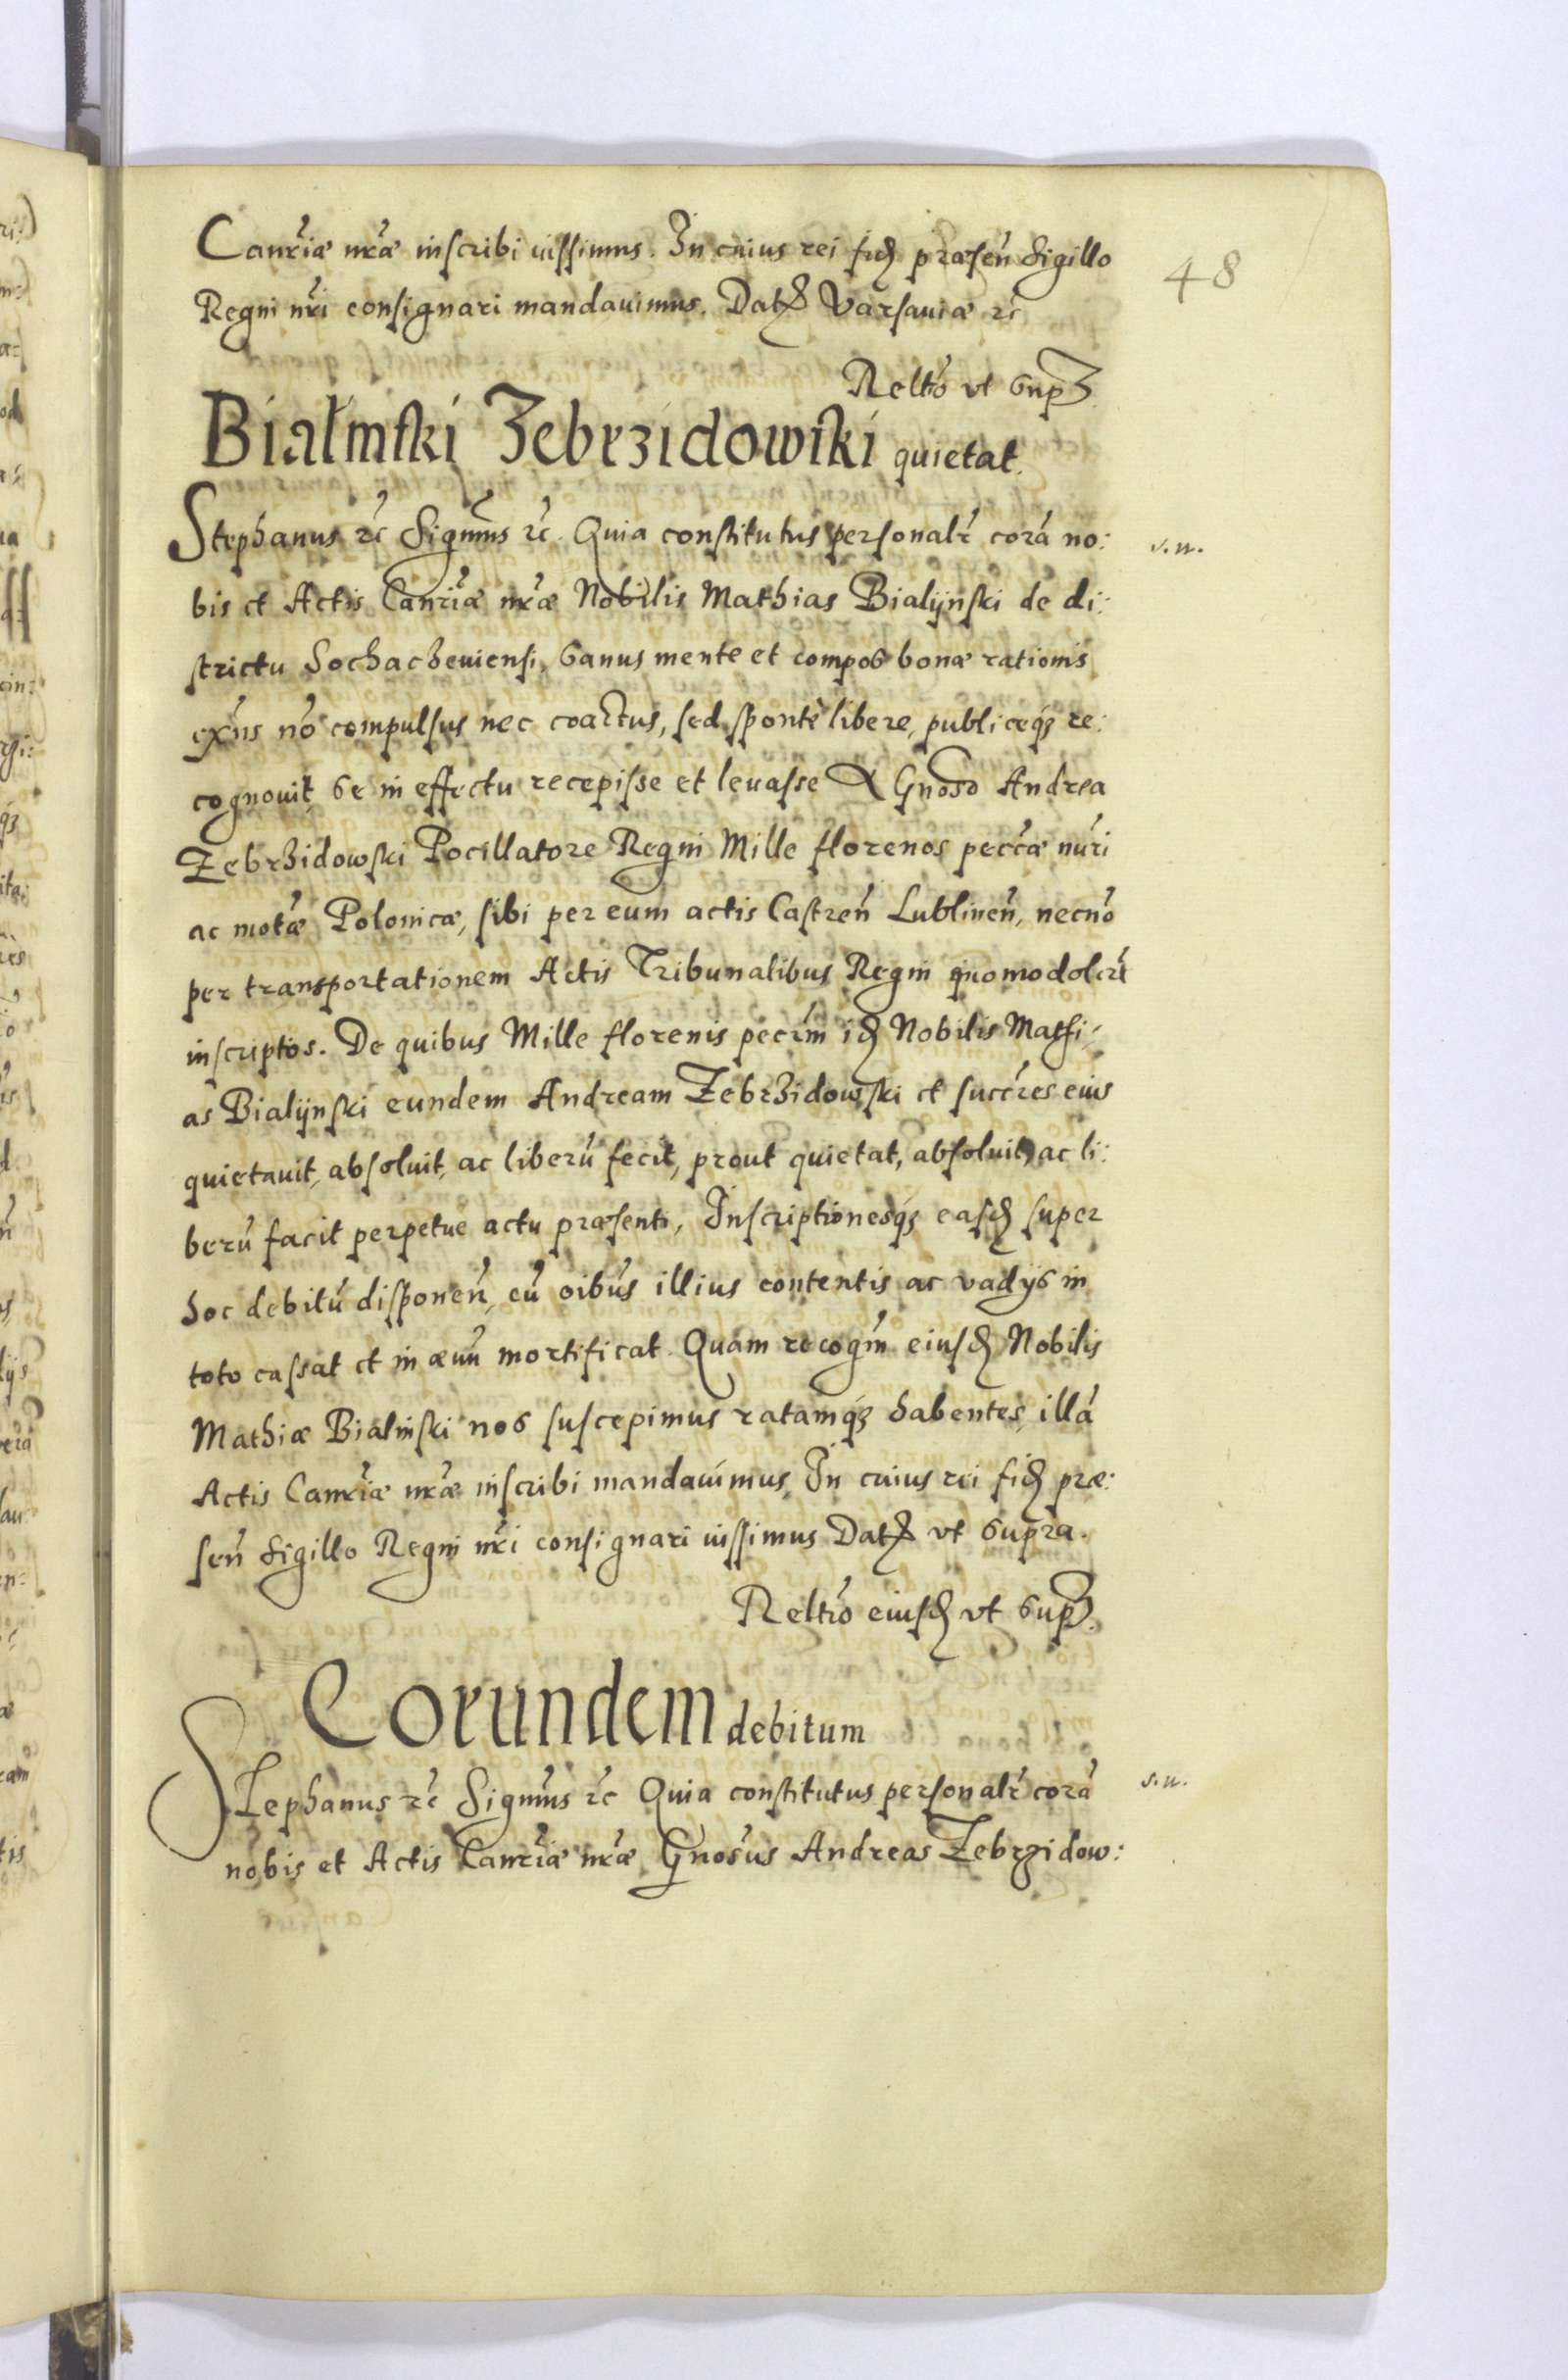 Canrĩæ nr̃æ inscribi iussimus. In cuius rei fid̃ præsen̄ Sigillo
48
Regni nr̃i consignari mandauimus. Dat̃ Varsauiæ rc̃
Reltio᷉ vt supꝫ
Bialinski Zebrzidowski quietat.
Stephanus rc̃ Significamus rc̃. Quia constitutus personalr̃ corã no:
s. n.
bis et Actis Canrĩæ nr̃æ Nobilis Mathias Bialÿnski de di:
strictu Sochacheuiensi, sanus mente et compos bonæ rationis
exn̄s nõ compulsus nec coactus, sed sponte libere, publiceqꝫ re:
cognouit, se in effectu recepisse et leuasse A Gnõso Andrea
Zebrzidowski Pocillatore Regni Mille florenos peccæ̃ nũri
ac motæ̃ Polonicæ, sibi per eum actis Castren̄ Lublinen̄, necnõ
per transportationem Actis Tribunalibus Regni quomodolt̃
inscriptos. De quibus Mille florenis pecr̃m id̃ Nobilis Mathi-
as Bialÿnski eundem Andream Zebrzidowski et succr̃es eius
quietauit, absoluit, ac liberũ fecit, prout quietat, absoluit, ac li:
berũ facit perpetue actu præsenti, Inscriptionesqꝫ easd̃ super
hoc debitũ disponen̄, cũ oibũs illius contentis ac vadÿs in
toto cassat et in æuũ mortificat. Quam recogñm eiusd̃ Nobilis
Mathiæ Bialinski nos suscepimus ratamqꝫ habentes, illã
Actis Canrĩæ nr̃æ inscribi mandauimus, In cuius rei fid̃ præ:
sen̄ Sigillo Regni nr̃i consignari iussimus Dat̃ vt supra.
Reltio᷉ eiusd̃ vt supꝫ.
Eorundem debitum
Stephanus rc̃ Signmũs rc̃ Quia constitutus personalr̃ corã
s. n.
nobis et Actis Canrĩæ nr̃æ Gnõsus Andreas Zebrzidow: